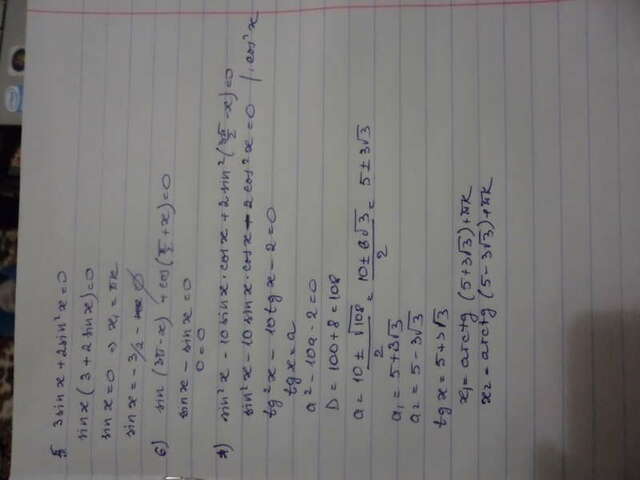 5 3sinx+2sin²x=0
sinx(3+2sinx)=0
sinx=0 → x₁=πk
sinx=-3/2 - ∅
6) sin(3π-x)+cos(π/2+x)=0
sinx-sinx=0
0=0
7) sin²x-10sinx·cosx+2sin²(3π/2-x)=0
sin²x-10sinx·cosx-2cos²x=0 |:cos²x
tg²x-10tgx-2=0
tgx=a
a²-10a-2=0
D=100+8=108
a=(10±√108)/2=(10±6√3)/2=5±3√3
a₁=5+3√3
a₂=5-3√3
tgx=5+3√3
x₁=arctg(5+3√3)+πk
x₂=arctg(5-3√3)+πk